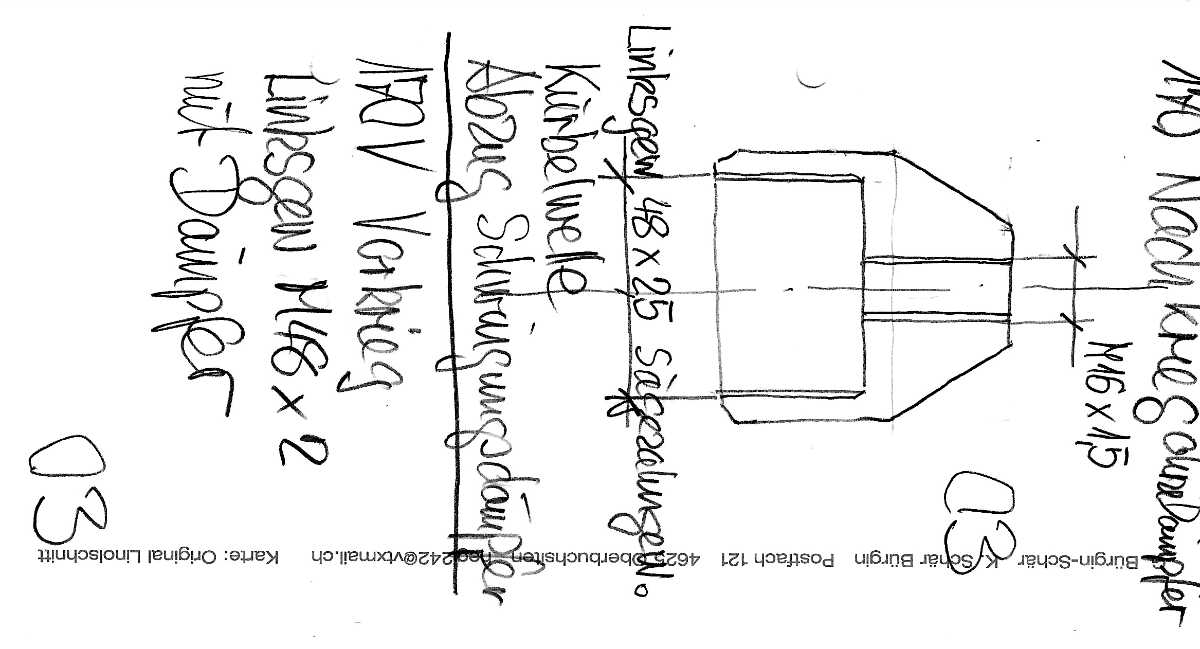 170 Nachkrieg ohne Dämpfer
M16 x 1,5
03
Linksgew 48 x 25 Sägezahngew.
Kürbelwelle
Abzug Schwingungsdämpfer
170 V Vorkrieg
Linksgew M48 x 2
mit Dämpfer
03
Bürgin-Schär K. Schär Bürgin Postfach 121 4625 Oberbuchsiten heg242@vtxmail.ch Karte: Original Linolschnitt